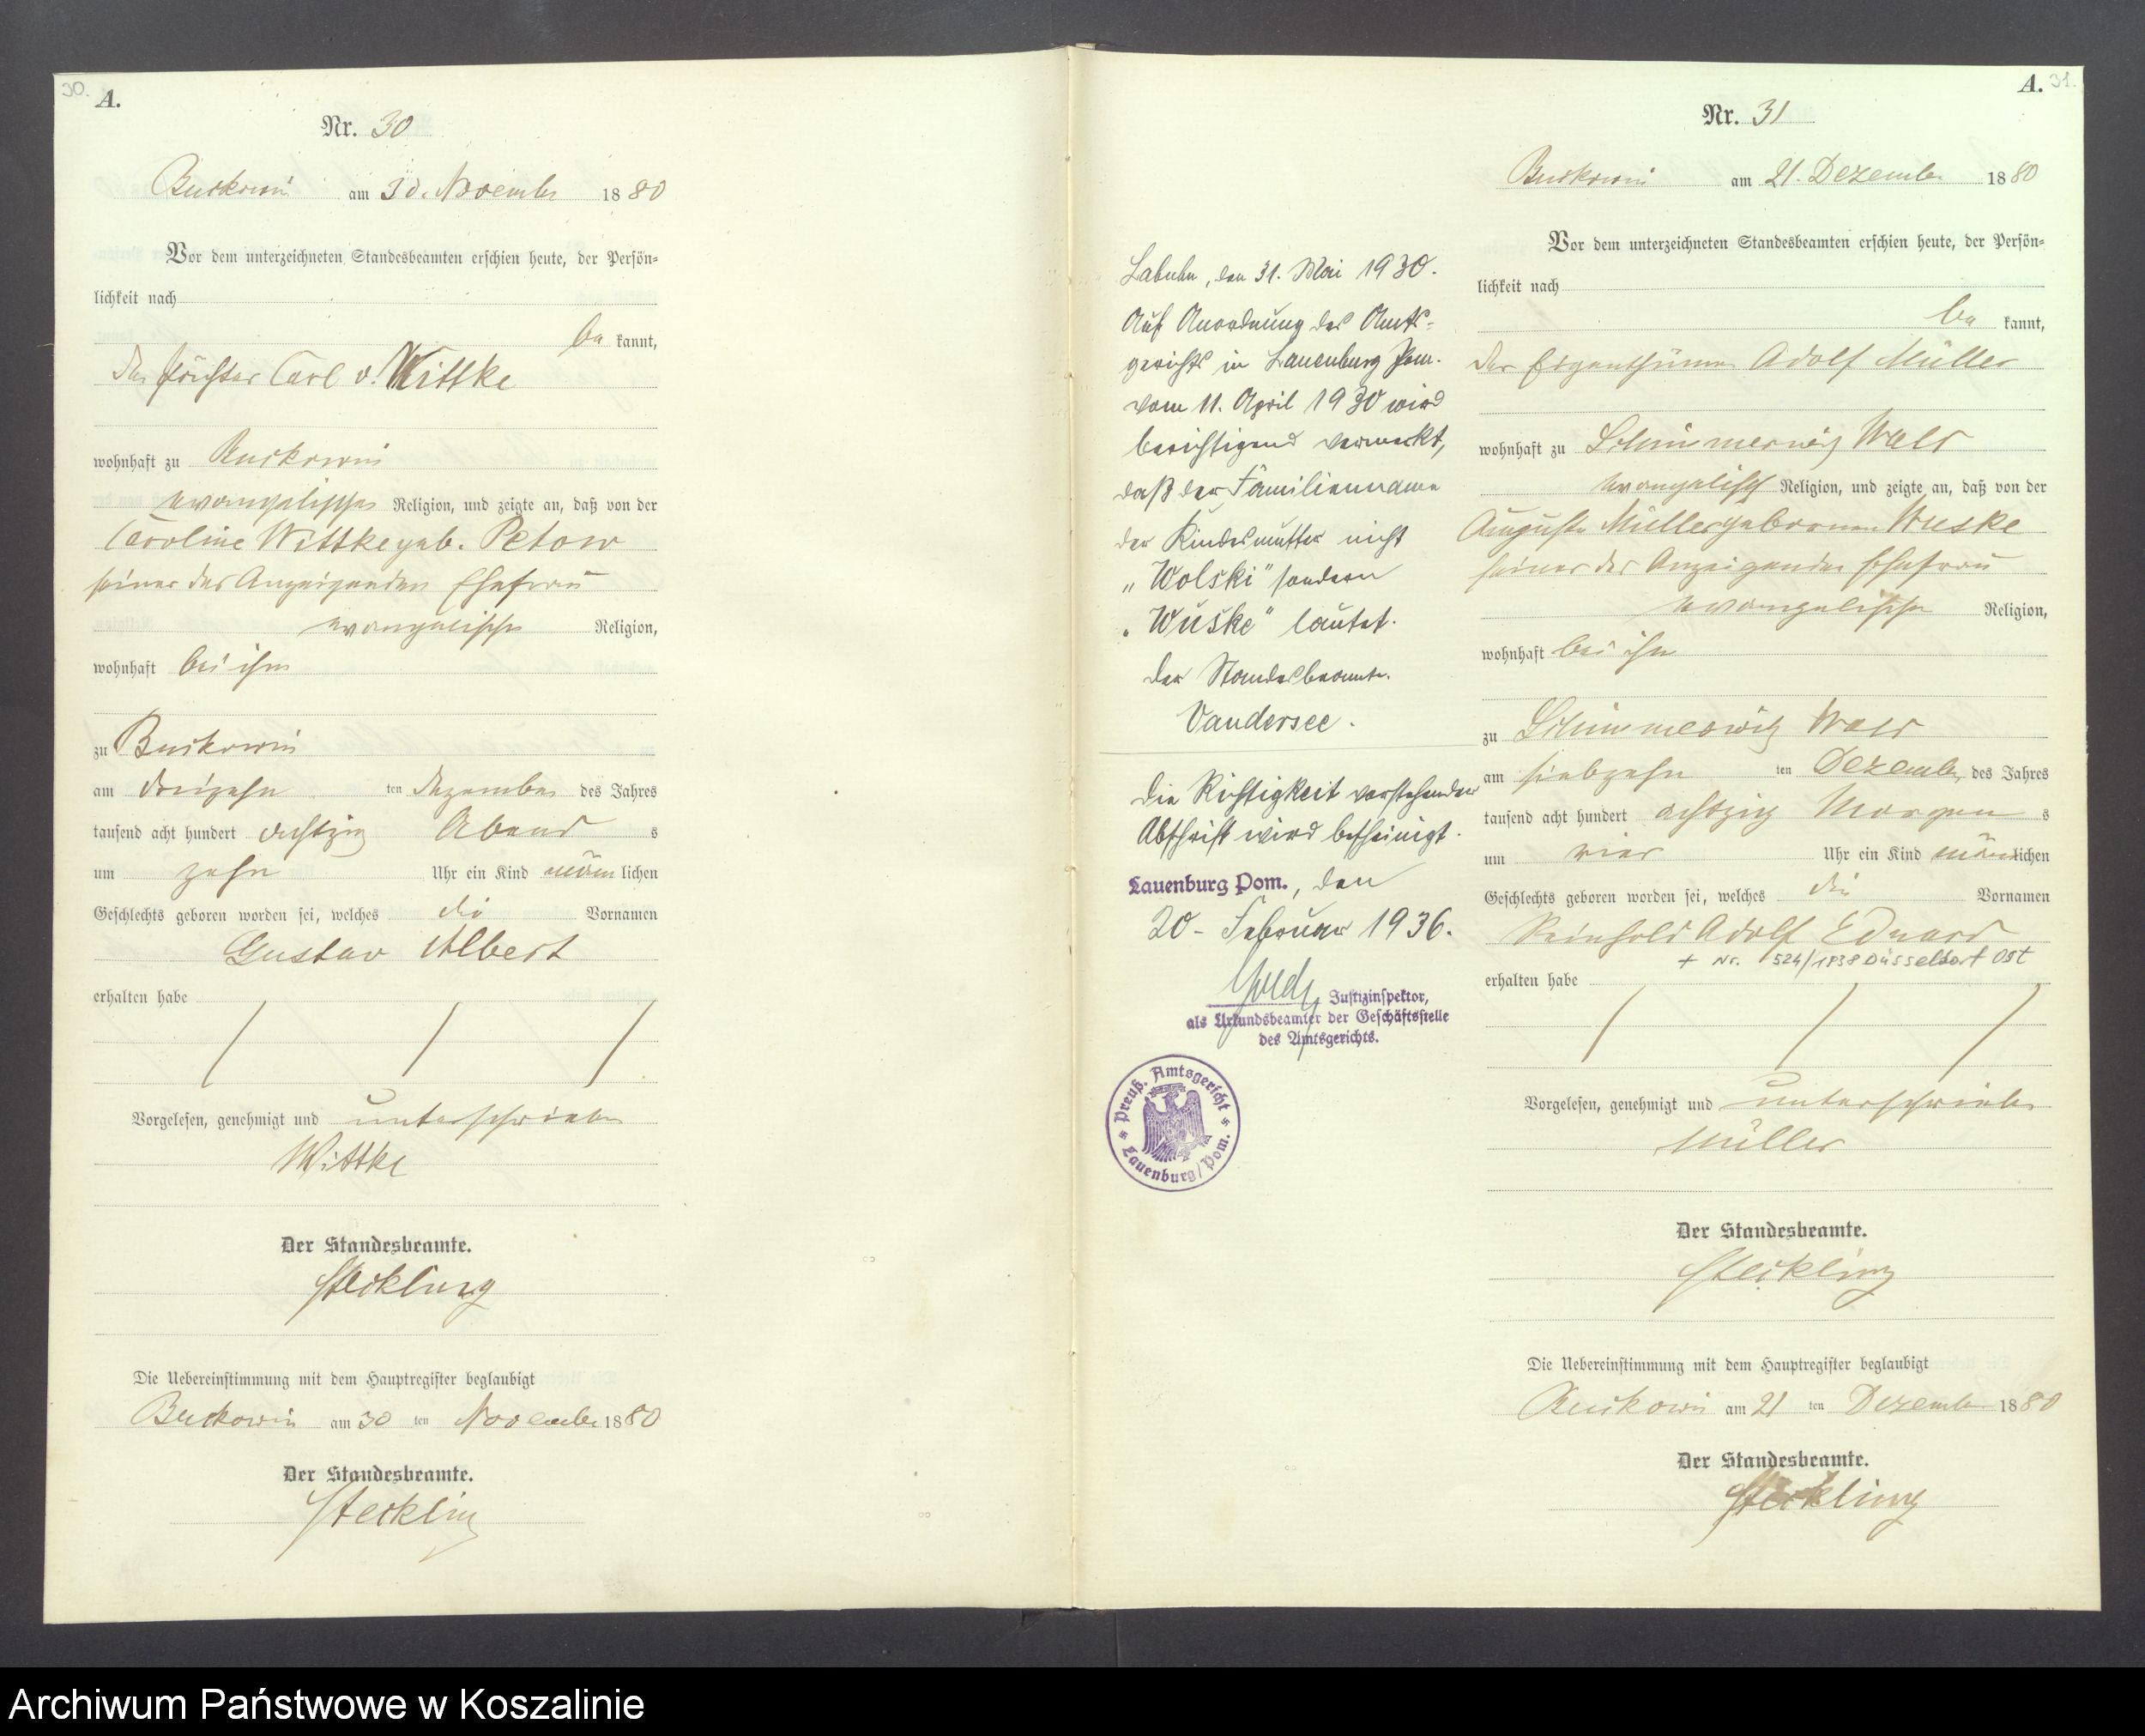 30.
A.
Nr. 30
Buckowin am 30. November 1880
Vor dem unterzeichneten Standesbeamten erschien heute, der Persön-
lichkeit nach
be kannt,
der Förster Carl v. Wittke
wohnhaft zu Buckowin
evangelischer Religion, und zeigte an, daß von der
Caroline Wittke geb. Petow
seiner des Anzeigenden Ehefrau
evangelischer Religion,
wohnhaft bei ihm
zu Buckowin
am dreizehn ten Dezember des Jahres
tausend acht hundert achtzig Abend s
um zehn Uhr ein Kind männlichen
Geschlechts geboren worden sei, welches die Vornamen
Gustav Albert
erhalten habe
Vorgelesen, genehmigt und unterschrieben
Wittke
Der Standesbeamte.
Steckling
Die Uebereinstimmung mit dem Hauptregister beglaubigt
Buckowin am 30 ten November 1880
Der Standesbeamte.
Steckling
Labuhn, den 31. Mai 1930.
Auf Anordnung des Amts-
gerichts in Lauenburg Pom.
vom 11. April 1930 wird
berichtigend vermerkt,
daß der Familienname
der Kindesmutter nicht
„Wolski" sondern
„Wuske" lautet.
Der Standesbeamte.
Vandersee.
Die Richtigkeit vorstehender
Abschrift wird bescheinigt.
Lauenburg Pom., den
20. Februar 1936.
Justizinspektor,
als Urkundsbeamter der Geschäftsstelle
des Amtsgerichts.
Preuß. Amtsgericht
Lauenburg/Pom.
A. 31.
Nr. 31
Buckowin am 21. Dezember 1880
Vor dem unterzeichneten Standesbeamten erschien heute, der Persön-
lichkeit nach
be kannt,
der Eigenthümer Adolf Müller
wohnhaft zu Schimmerwitz Wald
evangelisch Religion, und zeigte an, daß von der
Auguste Müller geborenen Wuske
seiner des Anzeigenden Ehefrau
evangelischer Religion,
wohnhaft bei ihm
zu Schimmerwitz Wald
am siebzehn ten Dezember des Jahres
tausend acht hundert achtzig Morgen s
um vier Uhr ein Kind männlichen
Geschlechts geboren worden sei, welches die Vornamen
Reinhold Adolf Eduard
+ Nr. 524/1938 Düsseldorf Ost
erhalten habe
Vorgelesen, genehmigt und unterschrieben
Müller
Der Standesbeamte.
Steckling
Die Uebereinstimmung mit dem Hauptregister beglaubigt
Buckowin am 21 ten Dezember 1880
Der Standesbeamte.
Steckling
Archiwum Państwowe w Koszalinie